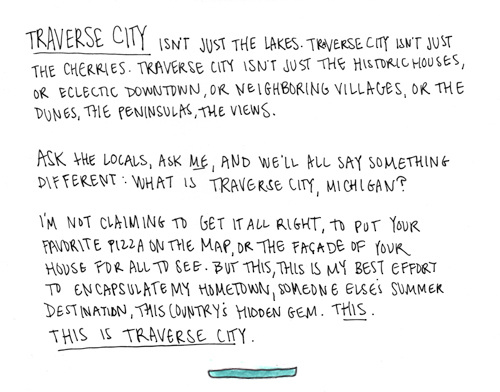 TRAVERSE CITY ISN'T JUST THE LAKES. TRAVERSE CITY ISN'T JUST
THE CHERRIES. TRAVERSE CITY ISN'T JUST THE HISTORIC HOUSES,
OR ECLECTIC DOWNTOWN, OR NEIGHBORING VILLAGES, OR THE
DUNES, THE PENINSULAS, THE VIEWS.
ASK THE LOCALS, ASK ME, AND WE'LL ALL SAY SOMETHING
DIFFERENT: WHAT IS TRAVERSE CITY, MICHIGAN?
I'M NOT CLAIMING TO GET IT ALL RIGHT, TO PUT YOUR
FAVORITE PIZZA ON THE MAP, OR THE FAÇADE OF YOUR
HOUSE FOR ALL TO SEE. BUT THIS, THIS IS MY BEST EFFORT
TO ENCAPSULATE MY HOMETOWN, SOMEONE ELSE'S SUMMER
DESTINATION, THIS COUNTRY'S HIDDEN GEM. THIS.
THIS IS TRAVERSE CITY.